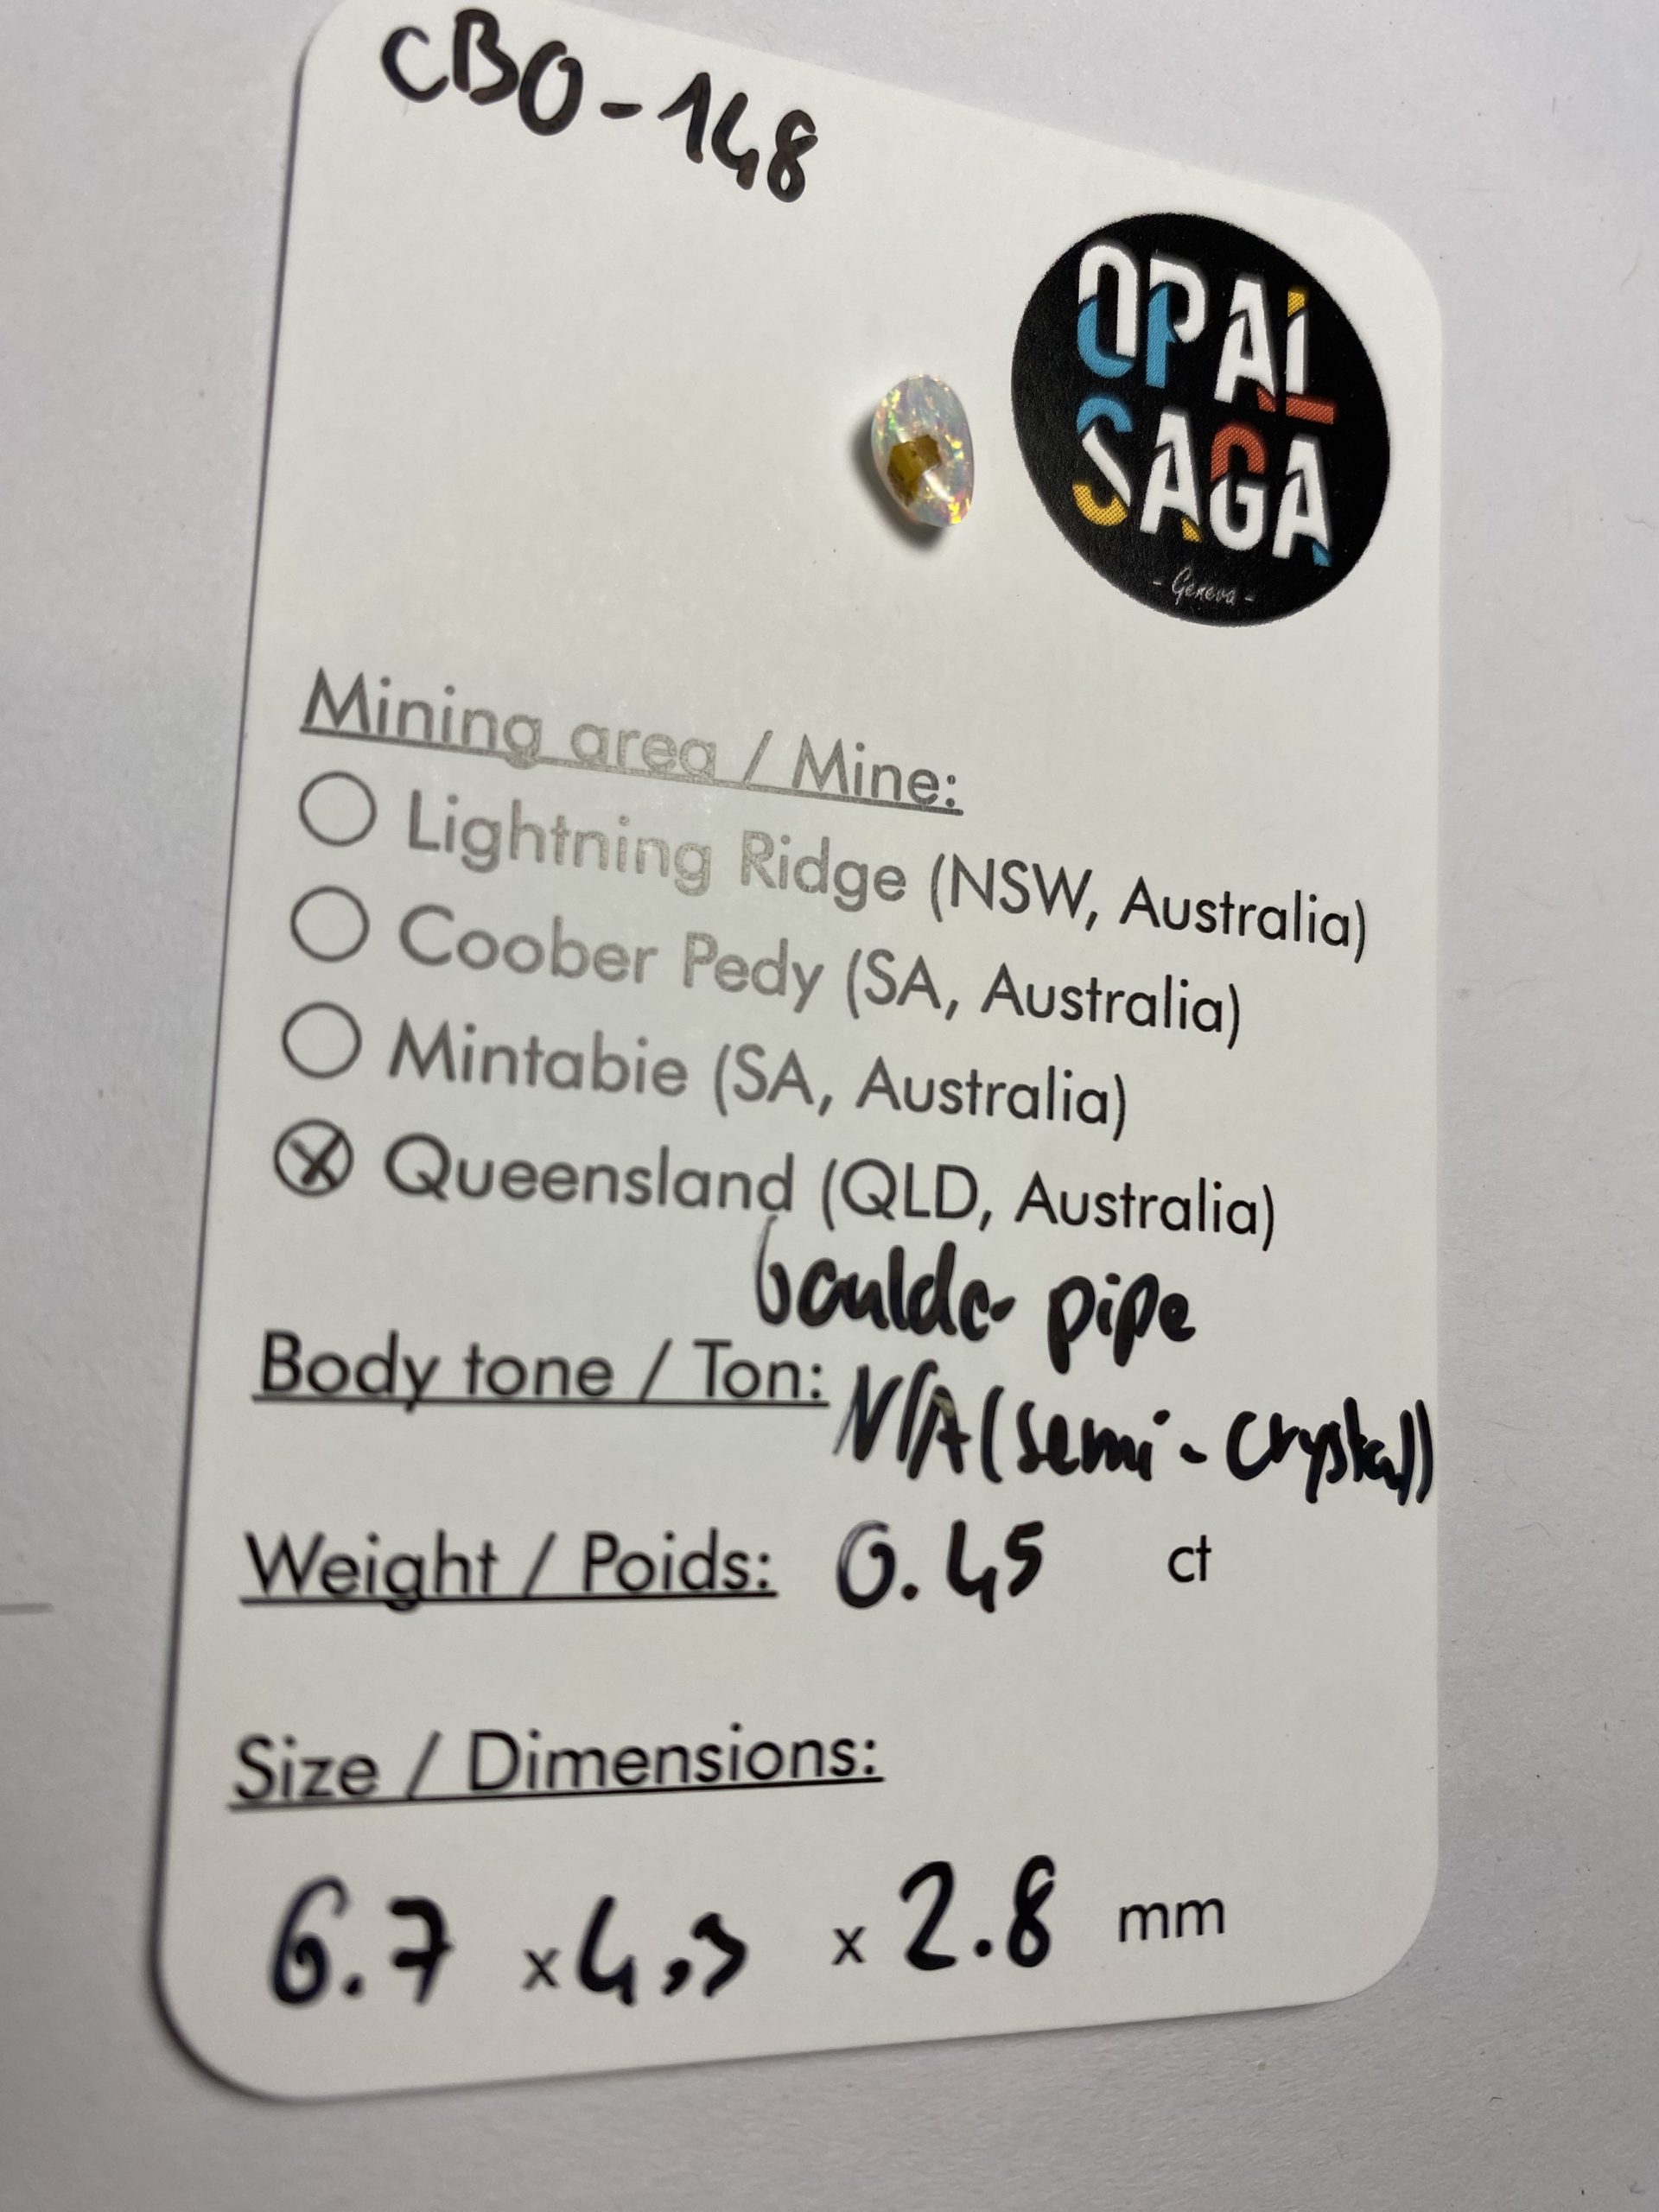 CBO-148
OPAL
SAGA
- Geneva -
Mining area / Mine:
Lightning Ridge (NSW, Australia)
Coober Pedy (SA, Australia)
Mintabie (SA, Australia)
X Queensland (QLD, Australia)
boulder pipe
Body tone / Ton: N/A (semi-crystal)
Weight / Poids: 0.45 ct
Size / Dimensions:
6.7 x 4,3 x 2.8 mm